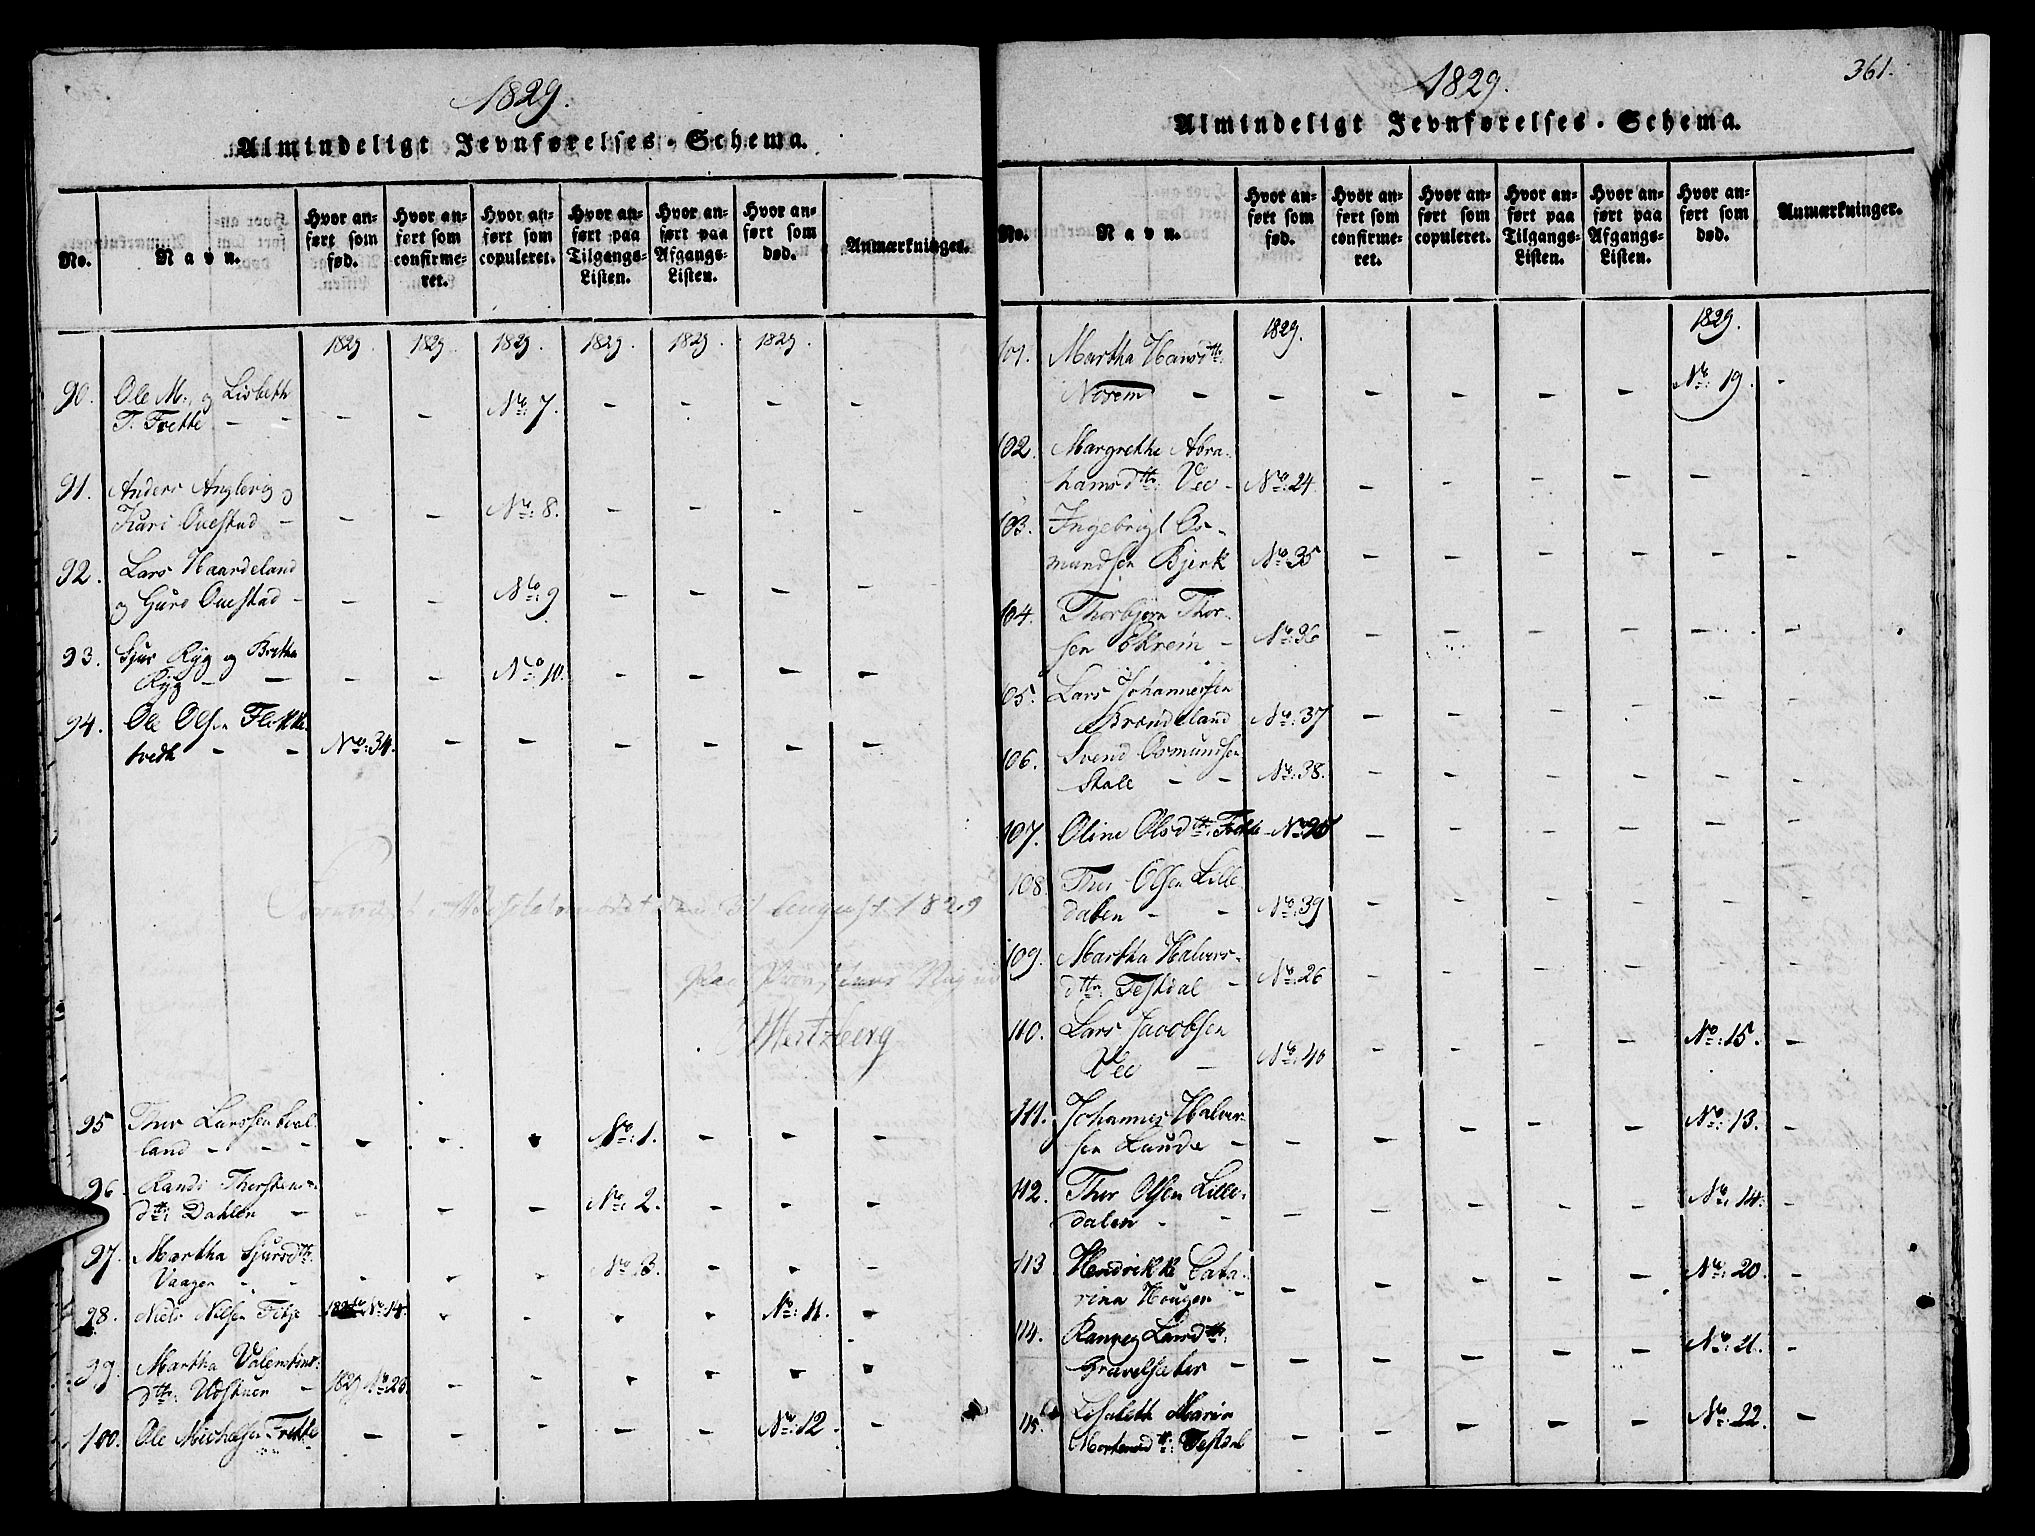 1829.
Almindeligt Jevnførelses-Schema.
No.
Navn.
Hvor an-
ført som
fød.
Hvor an-
ført som
confirme-
ret.
Hvor an-
ført som
copuleret.
Hvor an-
ført paa
Tilgangs-
Listen.
Hvor an-
ført paa
Afgangs-
Listen.
Hvor an-
ført som
død.
Anmærkninger.
1829. 1829. 1829. 1829. 1829. 1829.
90. Ole M. og Lisbeth
T. Frette - - - - No: 7. - - - -
91. Anders og
Kari Questad - - - No: 8. - - - -
92. Lars Haardeland
og Guro Questad - - - No: 9 - - - -
93. Sjur Ryg og Britha
Ryg - - - - No: 10. - - - -
94. Ole Olsen Flekke
tvedt - - No: 34. - - - - - -
31 August 1829
Hertzberg
95 Thor Larssen
land - - - - - No: 1. - - -
96. Randi Thorstens-
dtt: Dahlen - - - - No: 2. - - -
97. Martha Sjursdtt:
Vaagen - - - - - No: 3. - - -
98. Niels Nilsen Fitje No: 14. - - - - No: 11. -
99. Martha Valentins-
dtt: Udstuen - 1829 No: 25. - - - - - -
100. Ole Michelsen Frette - - - - - No: 12 - -
1829.
361.
Almindeligt Jevnførelses-Schema.
No.
Navn.
Hvor an-
ført som
fød.
Hvor an-
ført som
confirme-
ret.
Hvor an-
ført som
copuleret.
Hvor an-
ført paa
Tilgangs-
Listen.
Hvor an-
ført paa
Afgangs-
Listen.
Hvor an-
ført som
død.
Anmærkninger.
1829. 1829.
101. Martha Hansdtt:
Norem - - - - - - No: 19. -
102. Margrethe Abra-
hamsdtt: Vee - No: 24 - - - - - -
103. Ingebrigt Os-
mundsen Bjerk No: 35 - - - - - -
104. Thorbjørn Thor-
sen Ekrem - No: 36 - - - - - -
105. Lars Johannessen
Brondeland No: 37 - - - - - -
106. Svend Osmundsen
Skole - - No: 38. - - - - - -
107. Oline Olsdtt: Frette - No: 25 - - - - - -
108 Thor Olsen Lille
dalen - - No: 39 - - - - - -
109. Martha Halvors-
dtt: Testdal - No: 26 - - - - - -
110. Lars Jacobsen
Vee - No: 40 - - - - No: 15. -
111. Johannes Halvor-
sen Lunde - - - - - - No: 13. -
112. Thor Olsen Lille-
dalen - - - - - - - No: 14. -
113 Hendrikke Catha-
rina Houger - - - - - - No: 20. -
114. Ranveg Larsdtt:
Gravelsæter - - - - - - No: 21. -
115. Lisabeth Maria
Mortensdtt: Testdal - - - - - No: 22. -